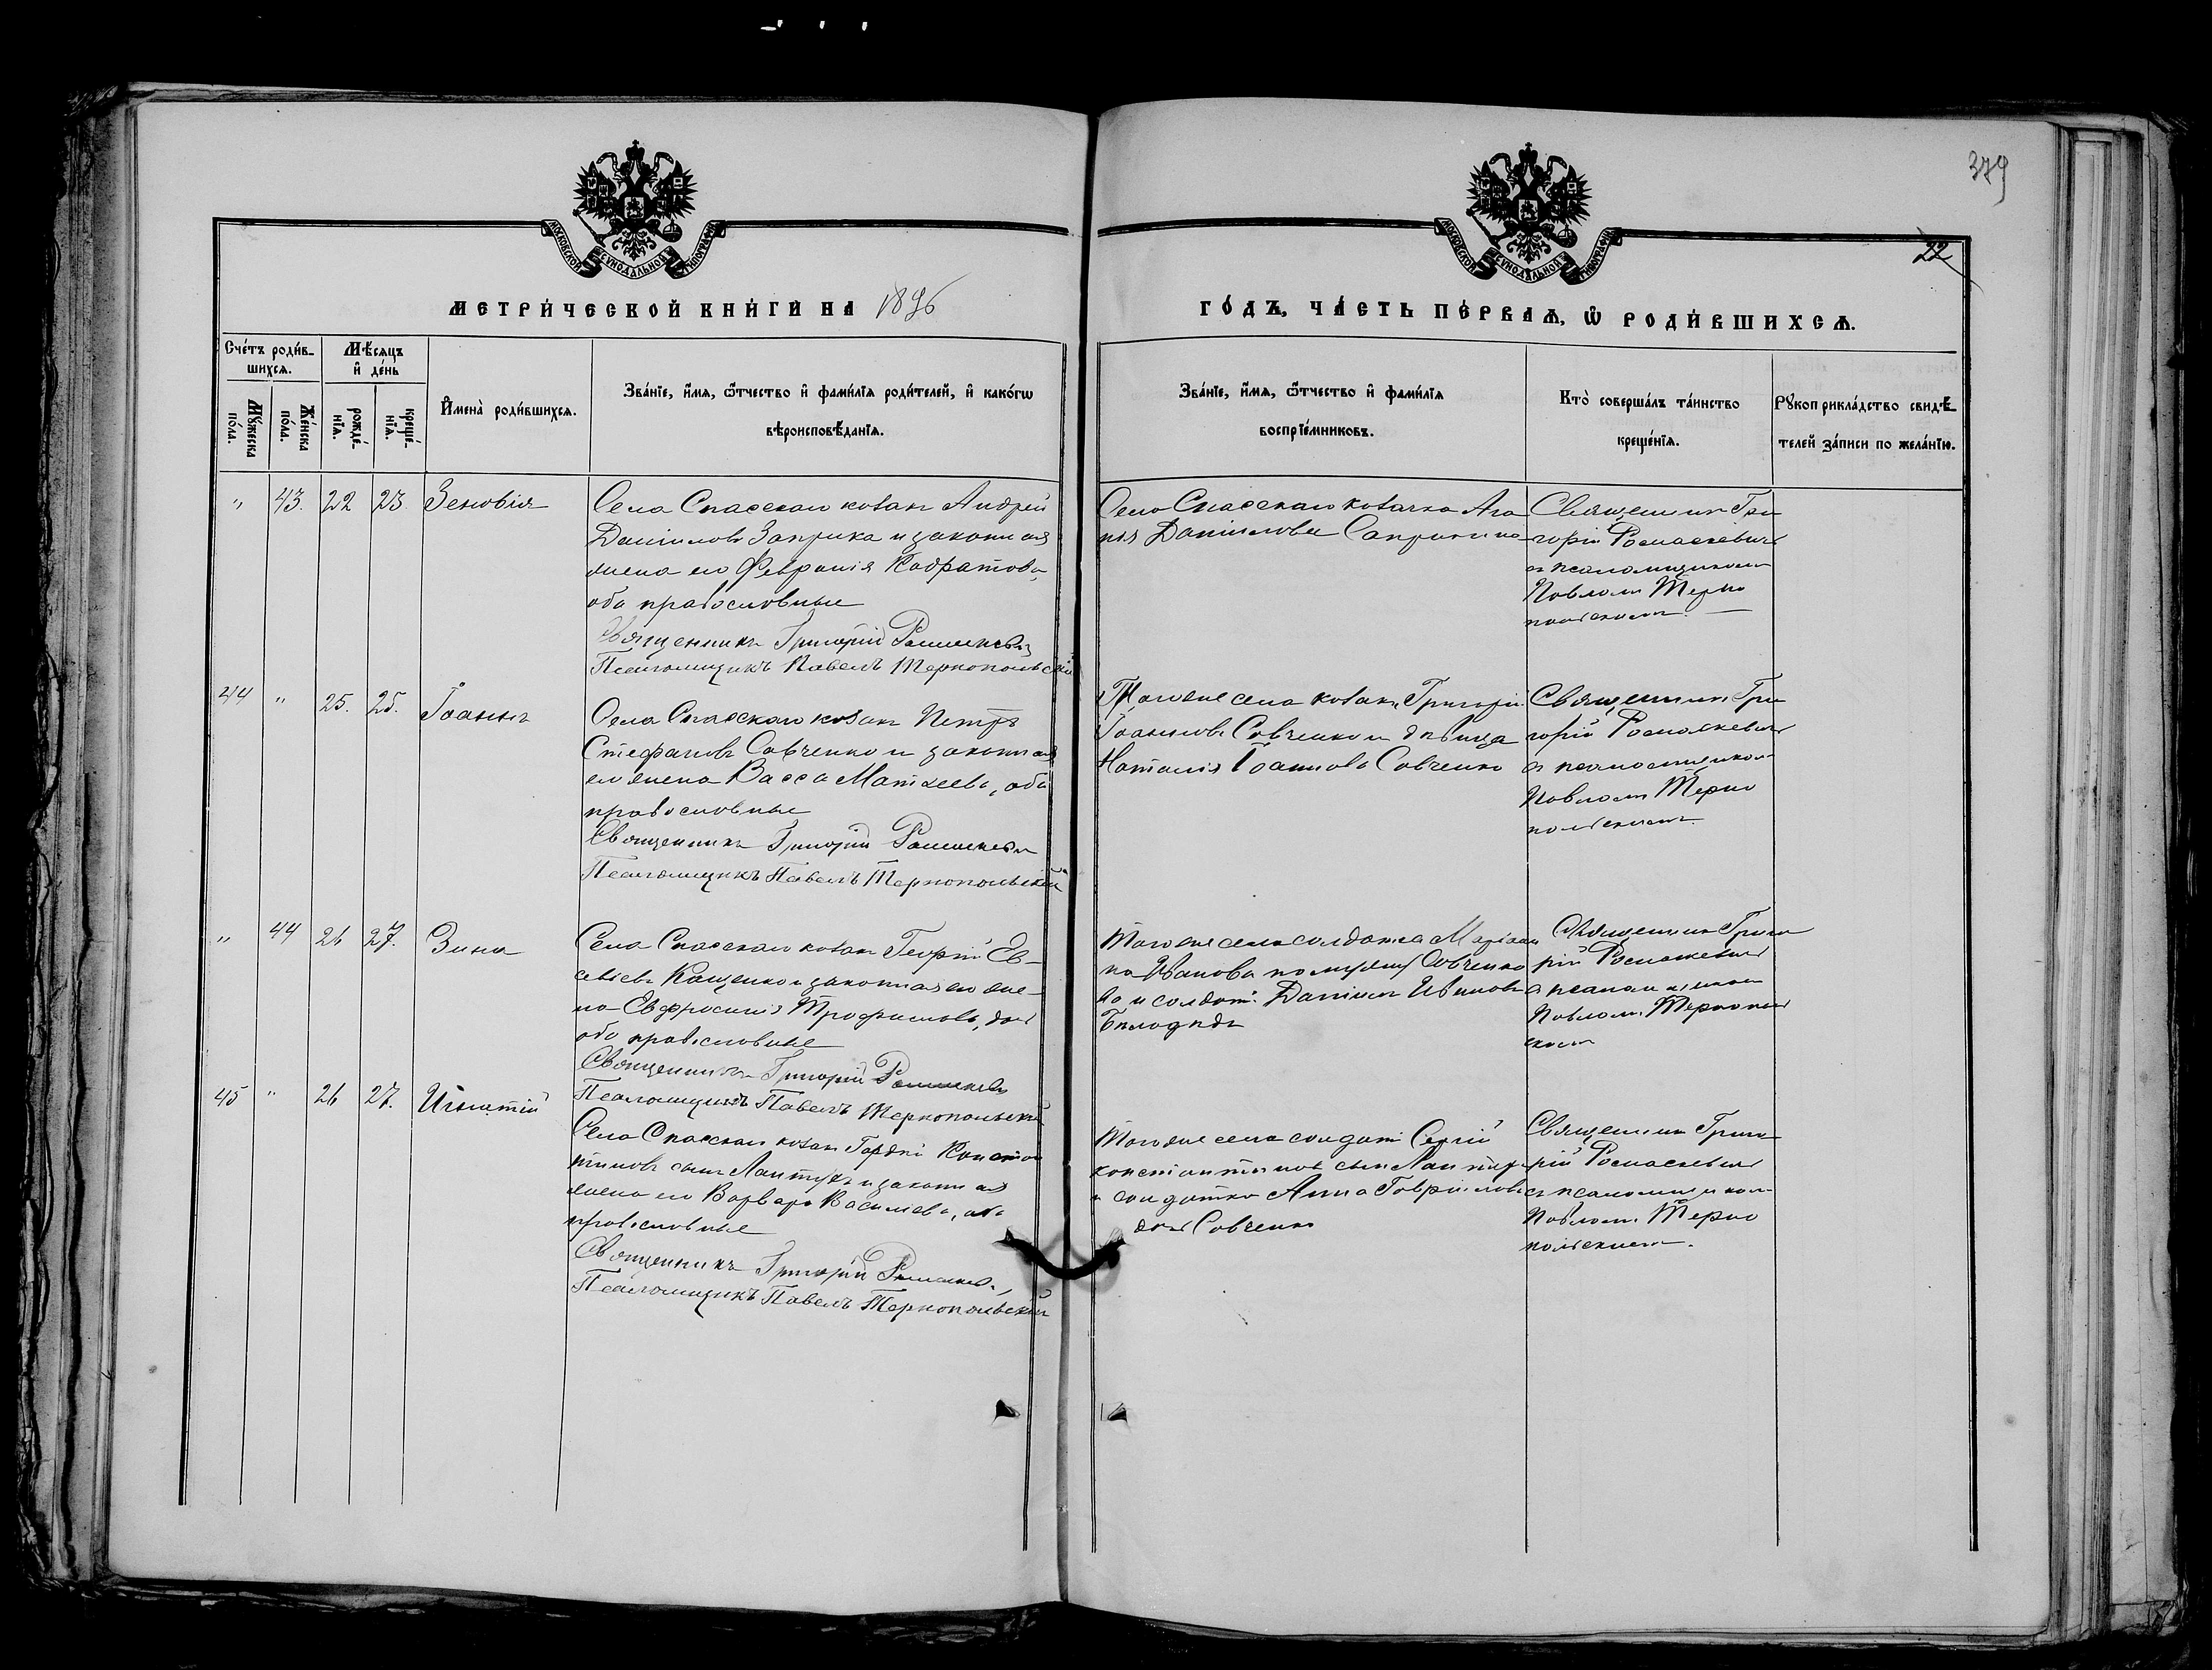 379
22
МОСКОВСКОЙ СѴНОДАЛЬНОЙ ТИПОГРАФІИ
МОСКОВСКОЙ СѴНОДАЛЬНОЙ ТИПОГРАФІИ
МЕТРИ́ЧЕСКОЙ КНИ́ГИ НА 1896
ГО́ДЪ, ЧА́СТЬ ПЕ́РВАѦ, Ѡ҆ РОДИ́ВШИХСѦ.
Сче́тъ роди́в-
шихсѧ.
Мѣ́сѧцъ
и҆ де́нь
Мꙋ́жеска по́ла.
Же́нска по́ла.
рожде́-нїѧ.
креще́-нїѧ.
И҆мена̀ роди́вшихсѧ.
Зва́нїе, и҆́мѧ, ѻ҆́тчество и҆ фами́лїѧ роди́телей, и҆ како́гѡ
вѣроисповѣ́данїѧ.
Зва́нїе, и҆́мѧ, ѻ҆́тчество и҆ фами́лїѧ
воспрїе́мниковъ.
Кто̀ соверша́лъ та́инство
креще́нїѧ.
Рꙋкоприкла́дство свидѣ́-
телей за́писи по жела́нїю.
" 43. 22 23. Зеновія
Села Спасскаго козакъ Андрей
Даніиловъ Заприка и законная
жена его Феврамія Кодратова,
оба православные
Священникъ Григорій
Псаломщикъ Павелъ Тернопольскій
Села Спасскаго козачка Ага
пія Даніилова
Священникъ Гри
горій
съ псаломщикомъ
Павломъ Терно
польскимъ. —
44 " 25. 25. Іоаннъ
Села Спасскаго козакъ Петръ
Стефановъ Савченко и законная
его жена Васса Матѳеева, оба
православные
Священникъ Григорій
Псаломщикъ Павелъ Тернопольскій
Того же села козакъ Григорій
Іоанновъ Савченко и дѣвица
Наталія Іоаннова Савченко
Священникъ Гри
горій
съ псаломщикомъ
Павломъ Терно
польскимъ.
" 44 26 27. Зина
Села Спасскаго козакъ Георгій Ев-
сеіевъ Кащенко и законная его же-
на Евфросинія Трофимова,
оба православные
Священникъ Григорій
Псаломщикъ Павелъ Тернопольскій
Того же села солдатка Маріан
на Иванова по мужу Савченко
и солдатъ Даніилъ Ивановъ
Билодидъ
Священникъ Григо
рій
съ псаломщикомъ
Павломъ Тернополь
скимъ
45 " 26 27. Игнатій
Села Спасскаго козакъ Гордій Констан
тиновъ сынъ Лантухъ и законная
жена его Варвара Василіева, оба
православные
Священникъ Григорій
Псаломщикъ Павелъ Тернопольскій
Того же села солдатъ Сергій
Константиновъ сынъ Лантухъ
и солдатка Анна Гавріилова
Савченко
Священникъ Григо
рій
съ псаломщикомъ
Павломъ Терно
польскимъ.